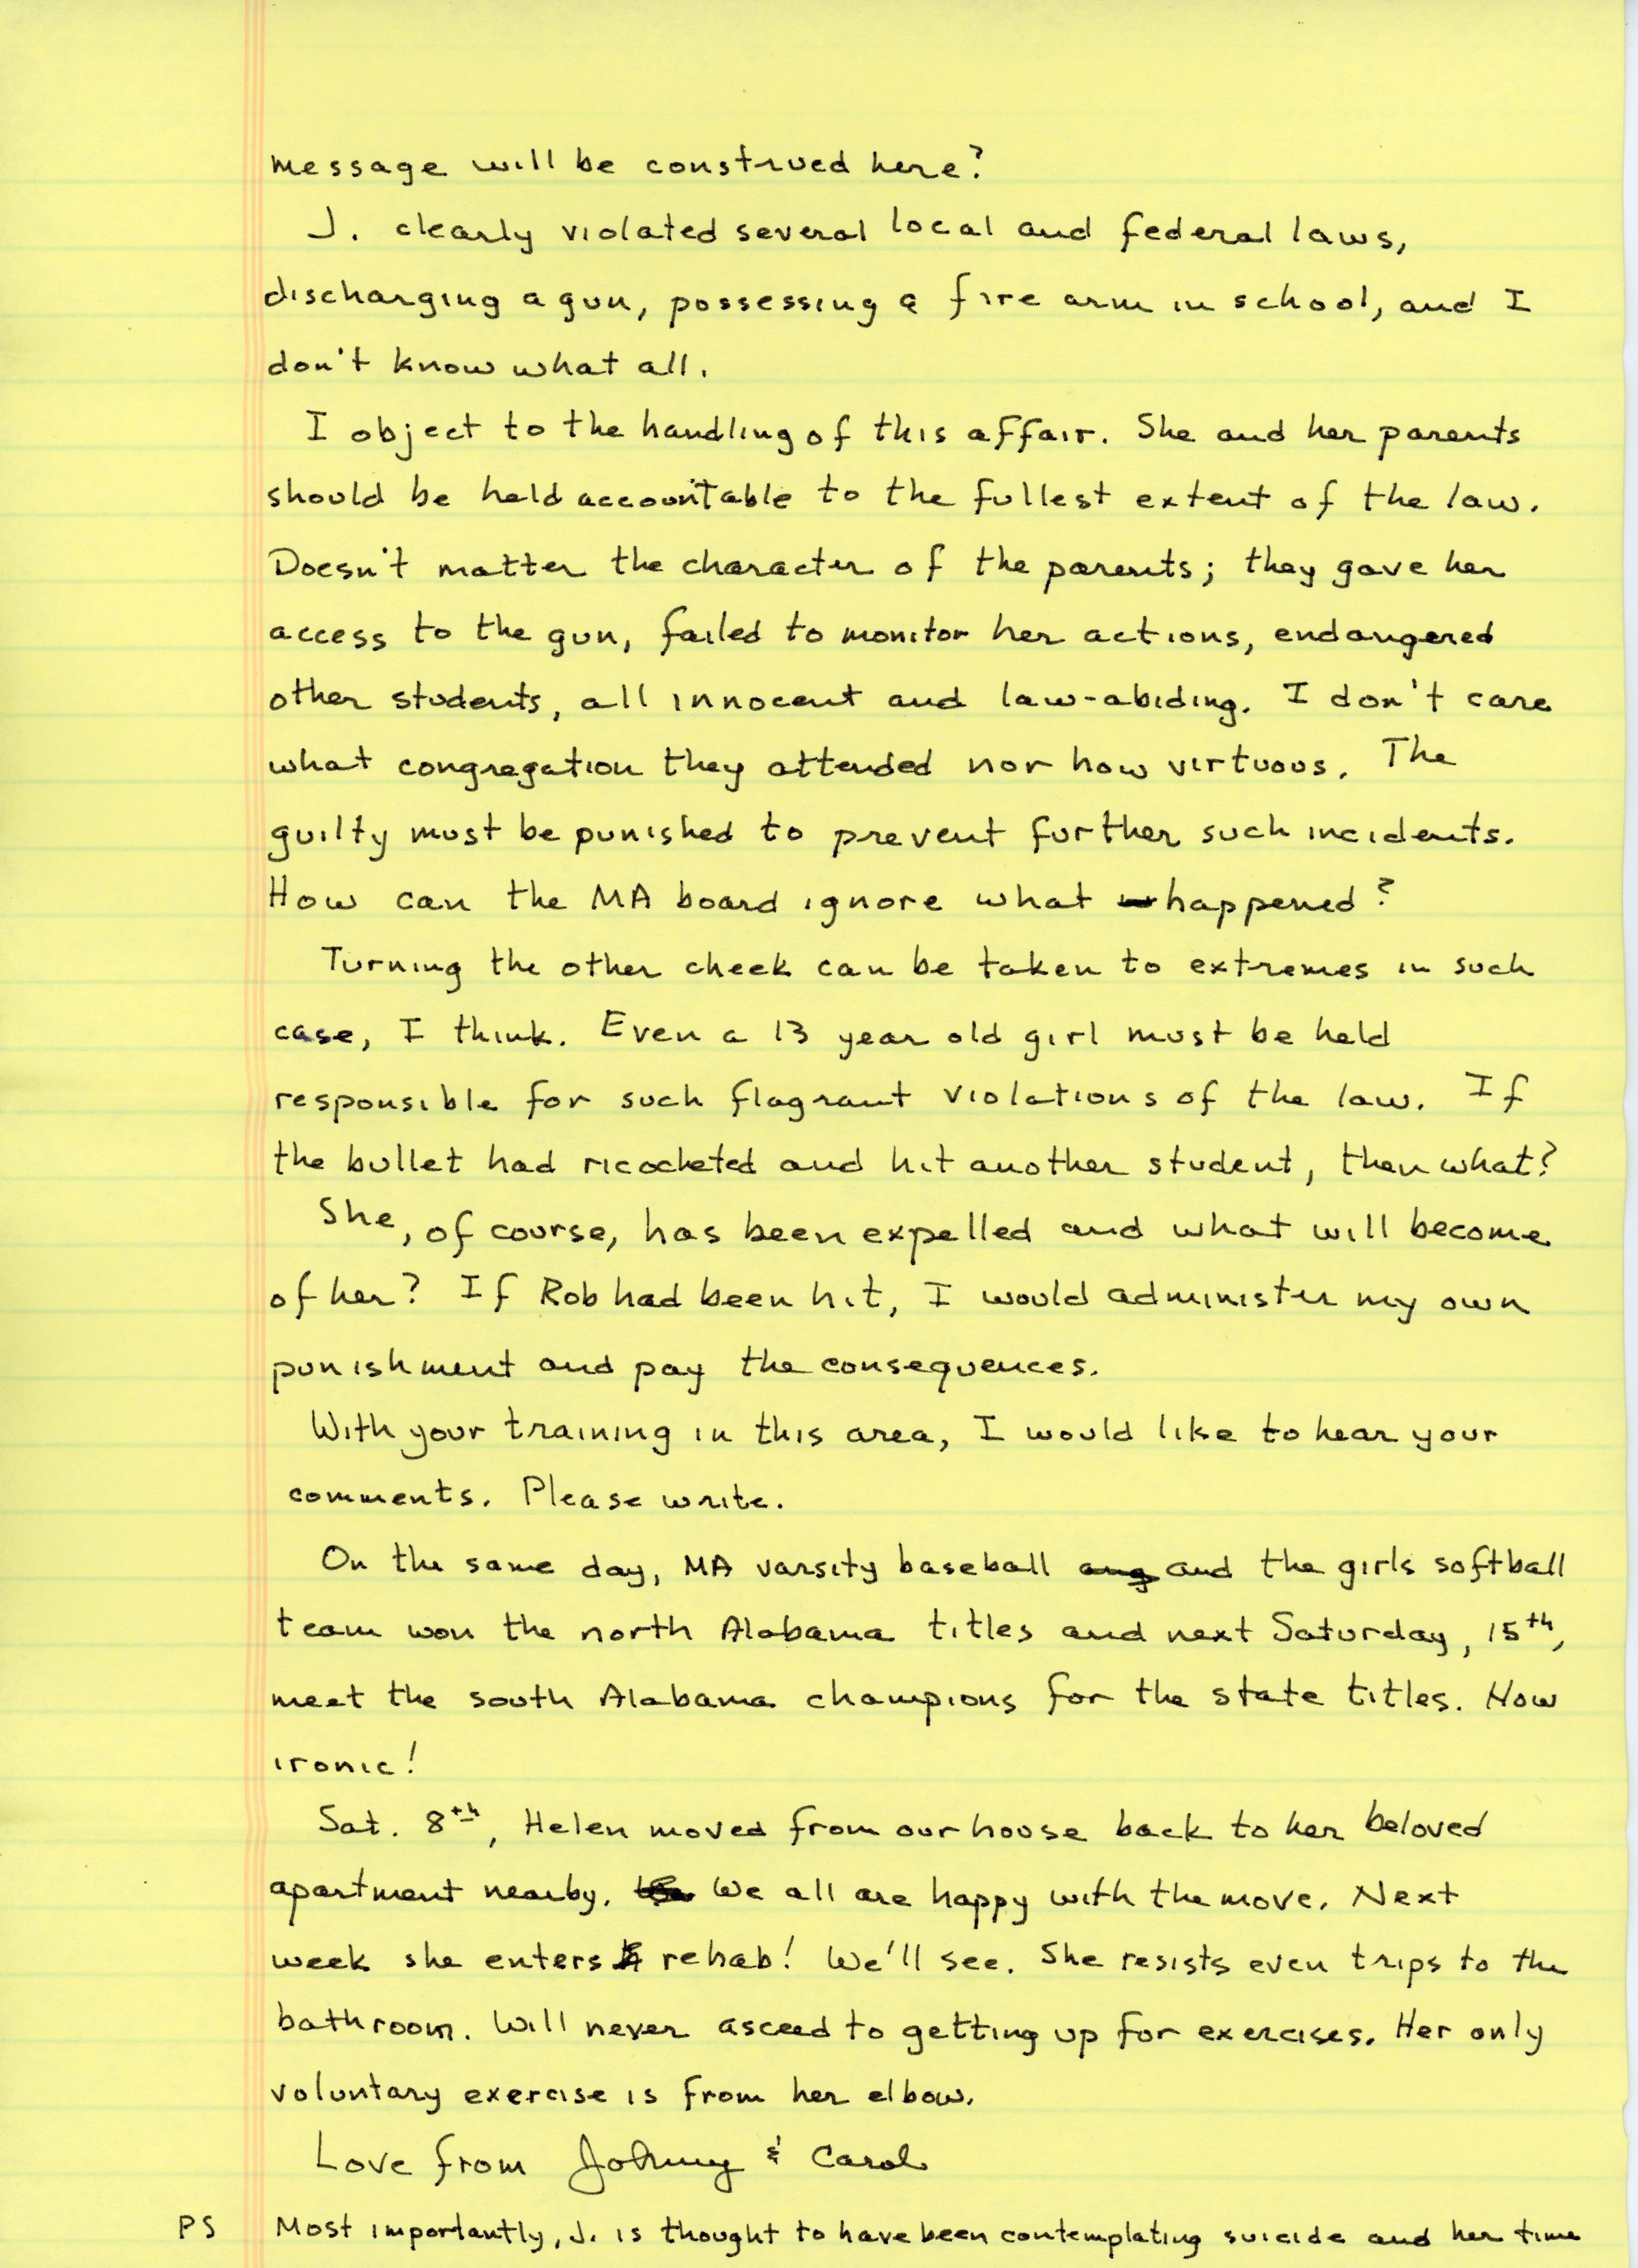 message will be construed here?
J. clearly violated several local and federal laws,
discharging a gun, possessing a fire arm in school, and I
don't know what all.
I object to the handling of this affair. She and her parents
should be held accountable to the fullest extent of the law.
Doesn't matter the character of the parents; they gave her
access to the gun, failed to monitor her actions, endangered
other students, all innocent and law-abiding. I don't care
what congregation they attended nor how virtuous. The
guilty must be punished to prevent further such incidents.
How can the MA board ignore what happened?
Turning the other cheek can be taken to extremes in such
case, I think. Even a 13 year old girl must be held
responsible for such flagrant violations of the law. If
the bullet had ricocheted and hit another student, then what?
She, of course, has been expelled and what will become
of her? If Rob had been hit, I would administer my own
punishment and pay the consequences.
With your training in this area, I would like to hear your
comments. Please write.
On the same day, MA varsity baseball and the girls softball
team won the north Alabama titles and next Saturday, 15th,
meet the south Alabama champions for the state titles. How
ironic!
Sat. 8th, Helen moved from our house back to her beloved
apartment nearby. We all are happy with the move. Next
week she enters rehab! We'll see. She resists even trips to the
bathroom. Will never asceed to getting up for exercises. Her only
voluntary exercise is from her elbow.
Love from Johnny & Carol
PS Most importantly, J. is thought to have been contemplating suicide and her time